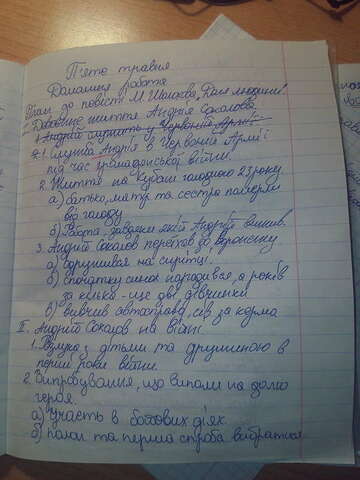 П'яте травня
Домашня робота
План до повісті М. Шолохова "Доля людини"
I. Довоєнне життя Андрія Соколова.
1. Андрій служить у Червоній Армії
1. Служба Андрія в Червоній Армії
під час громадянської війни.
2. Життя на Кубані голодного 23 року.
а) батько, мати та сестра померли
від голоду
б) Робота, завдяки якій Андрій вижив.
3. Андрій Соколов переїхав до Воронежу
а) одружився на сироті
б) спочатку синок народився, а років
за кілька - ще дві дівчинки
в) вивчив автосправу, сів за кермо
II. Андрій Соколов на війні.
1. Розлука з дітьми та дружиною в
перші роки війни.
2. Випробування, що випали на долю
героя.
а) участь в бойових діях
б) полон та перша спроба вибратися